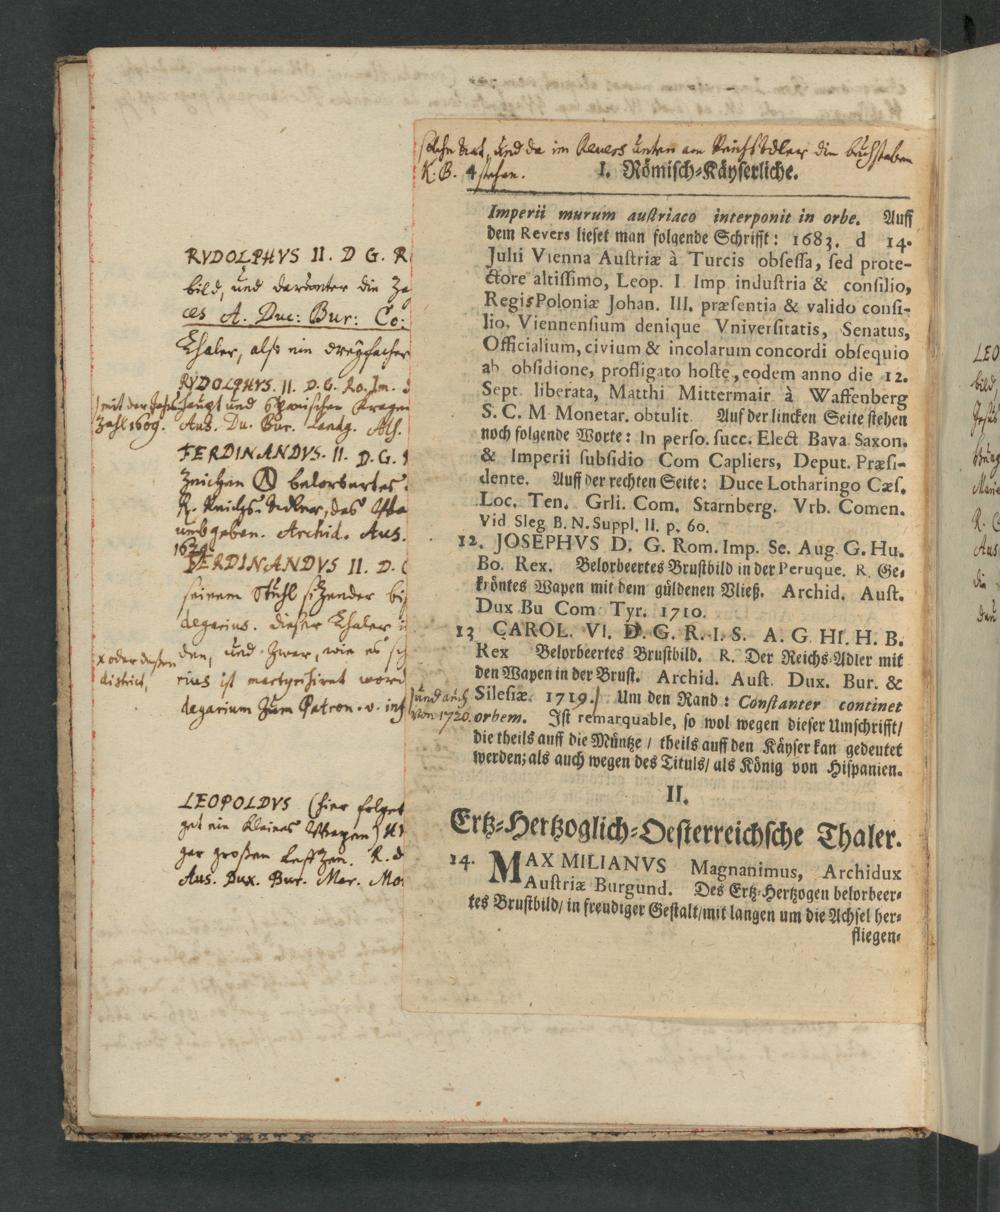 stehn hat, und da im Revers unten am Reichs Adler die buchstaben
K. B. 4 stehen.
I. Römisch-Käyserliche.
Imperii murum austriaco interponit in orbe. Auff
dem Revers lieset man folgende Schrifft: 1683. d 14.
Julii Vienna Austriæ à Turcis obsessa, sed prote-
ctore altissimo, Leop. I Imp industria & consilio,
Regis Poloniæ Johan. III. præsentia & valido consi-
lio, Viennensium denique Vniversitatis, Senatus,
Officialium, civium & incolarum concordi obsequio
ab obsidione, profligato hoste, eodem anno die 12.
Sept. liberata, Matthi Mittermair à Waffenberg
S. C. M. Monetar. obtulit. Auf der lincken Seite stehen
noch folgende Worte: In perso. succ. Elect Bava. Saxon.
& Imperii subsidio Com Capliers, Deput. Præsi-
dente. Auff der rechten Seite: Duce Lotharingo Cæs.
Loc. Ten. Grli. Com. Starnberg. Vrb. Comen.
Vid Sleg B. N. Suppl. II. p. 60.
12. JOSEPHVS D. G. Rom. Imp. Se. Aug. G. Hu.
Bo. Rex. Belorbeertes Brustbild in der Peruque. R. Ge-
kröntes Wapen mit dem güldenen Vließ. Archid. Aust.
Dux Bu Com Tyr. 1710.
13 CAROL. VI. D. G. R. I. S. A. G HI. H. B.
Rex Belorbeertes Brustbild. R. Der Reichs-Adler mit
den Wapen in der Brust. Archid. Aust. Dux. Bur. &
Silesiæ. 1719. Um den Rand: Constanter continet
orbem. Ist remarquable, so wol wegen dieser Umschrifft/
die theils auff die Müntze / theils auff den Käyser kan gedeutet
werden; als auch wegen des Tituls/ als König von Hispanien.
und auch
von 1720.
II.
Ertz-Hertzoglich-Oesterreichsche Thaler.
14. MAXMILIANVS Magnanimus, Archidux
Austriæ Burgund. Des Ertz-Hertzogen belorbeer-
tes Brustbild/ in freudiger Gestalt/ mit langen um die Achsel her-
fliegen-
RVDOLPHVS II. D G. R
bild, und darunter die Ja
ces A. Duc: Bur: Co:
Thaler, also ein dreyfacher
RVDOLPHVS. II. D. G. Ro. Im.
haupt und Spanischen Kragen
Aus. Du. Bur. Landg. Als.
mit der Jahr
Zahl 1609.
FERDINANDVS. II. D. G.
Zeichen A belorbertes
R. Reichs-Adler, das
umbgeben. Archid. Aus.
FERDINANDVS II. D.
seinem Stuhl sitzender bi
degarius. dieser Thaler
den, und zwar, wie es
rius ist martyrisiret word
degarium zum Patron
x oder dessen
district,
LEOPOLDVS (hier folget
get ein kleines Wapen)
ger großen R.
Aus. Dux. Bur. Mar. Mo
LEO
bild,
Marie
R.
Aus
die